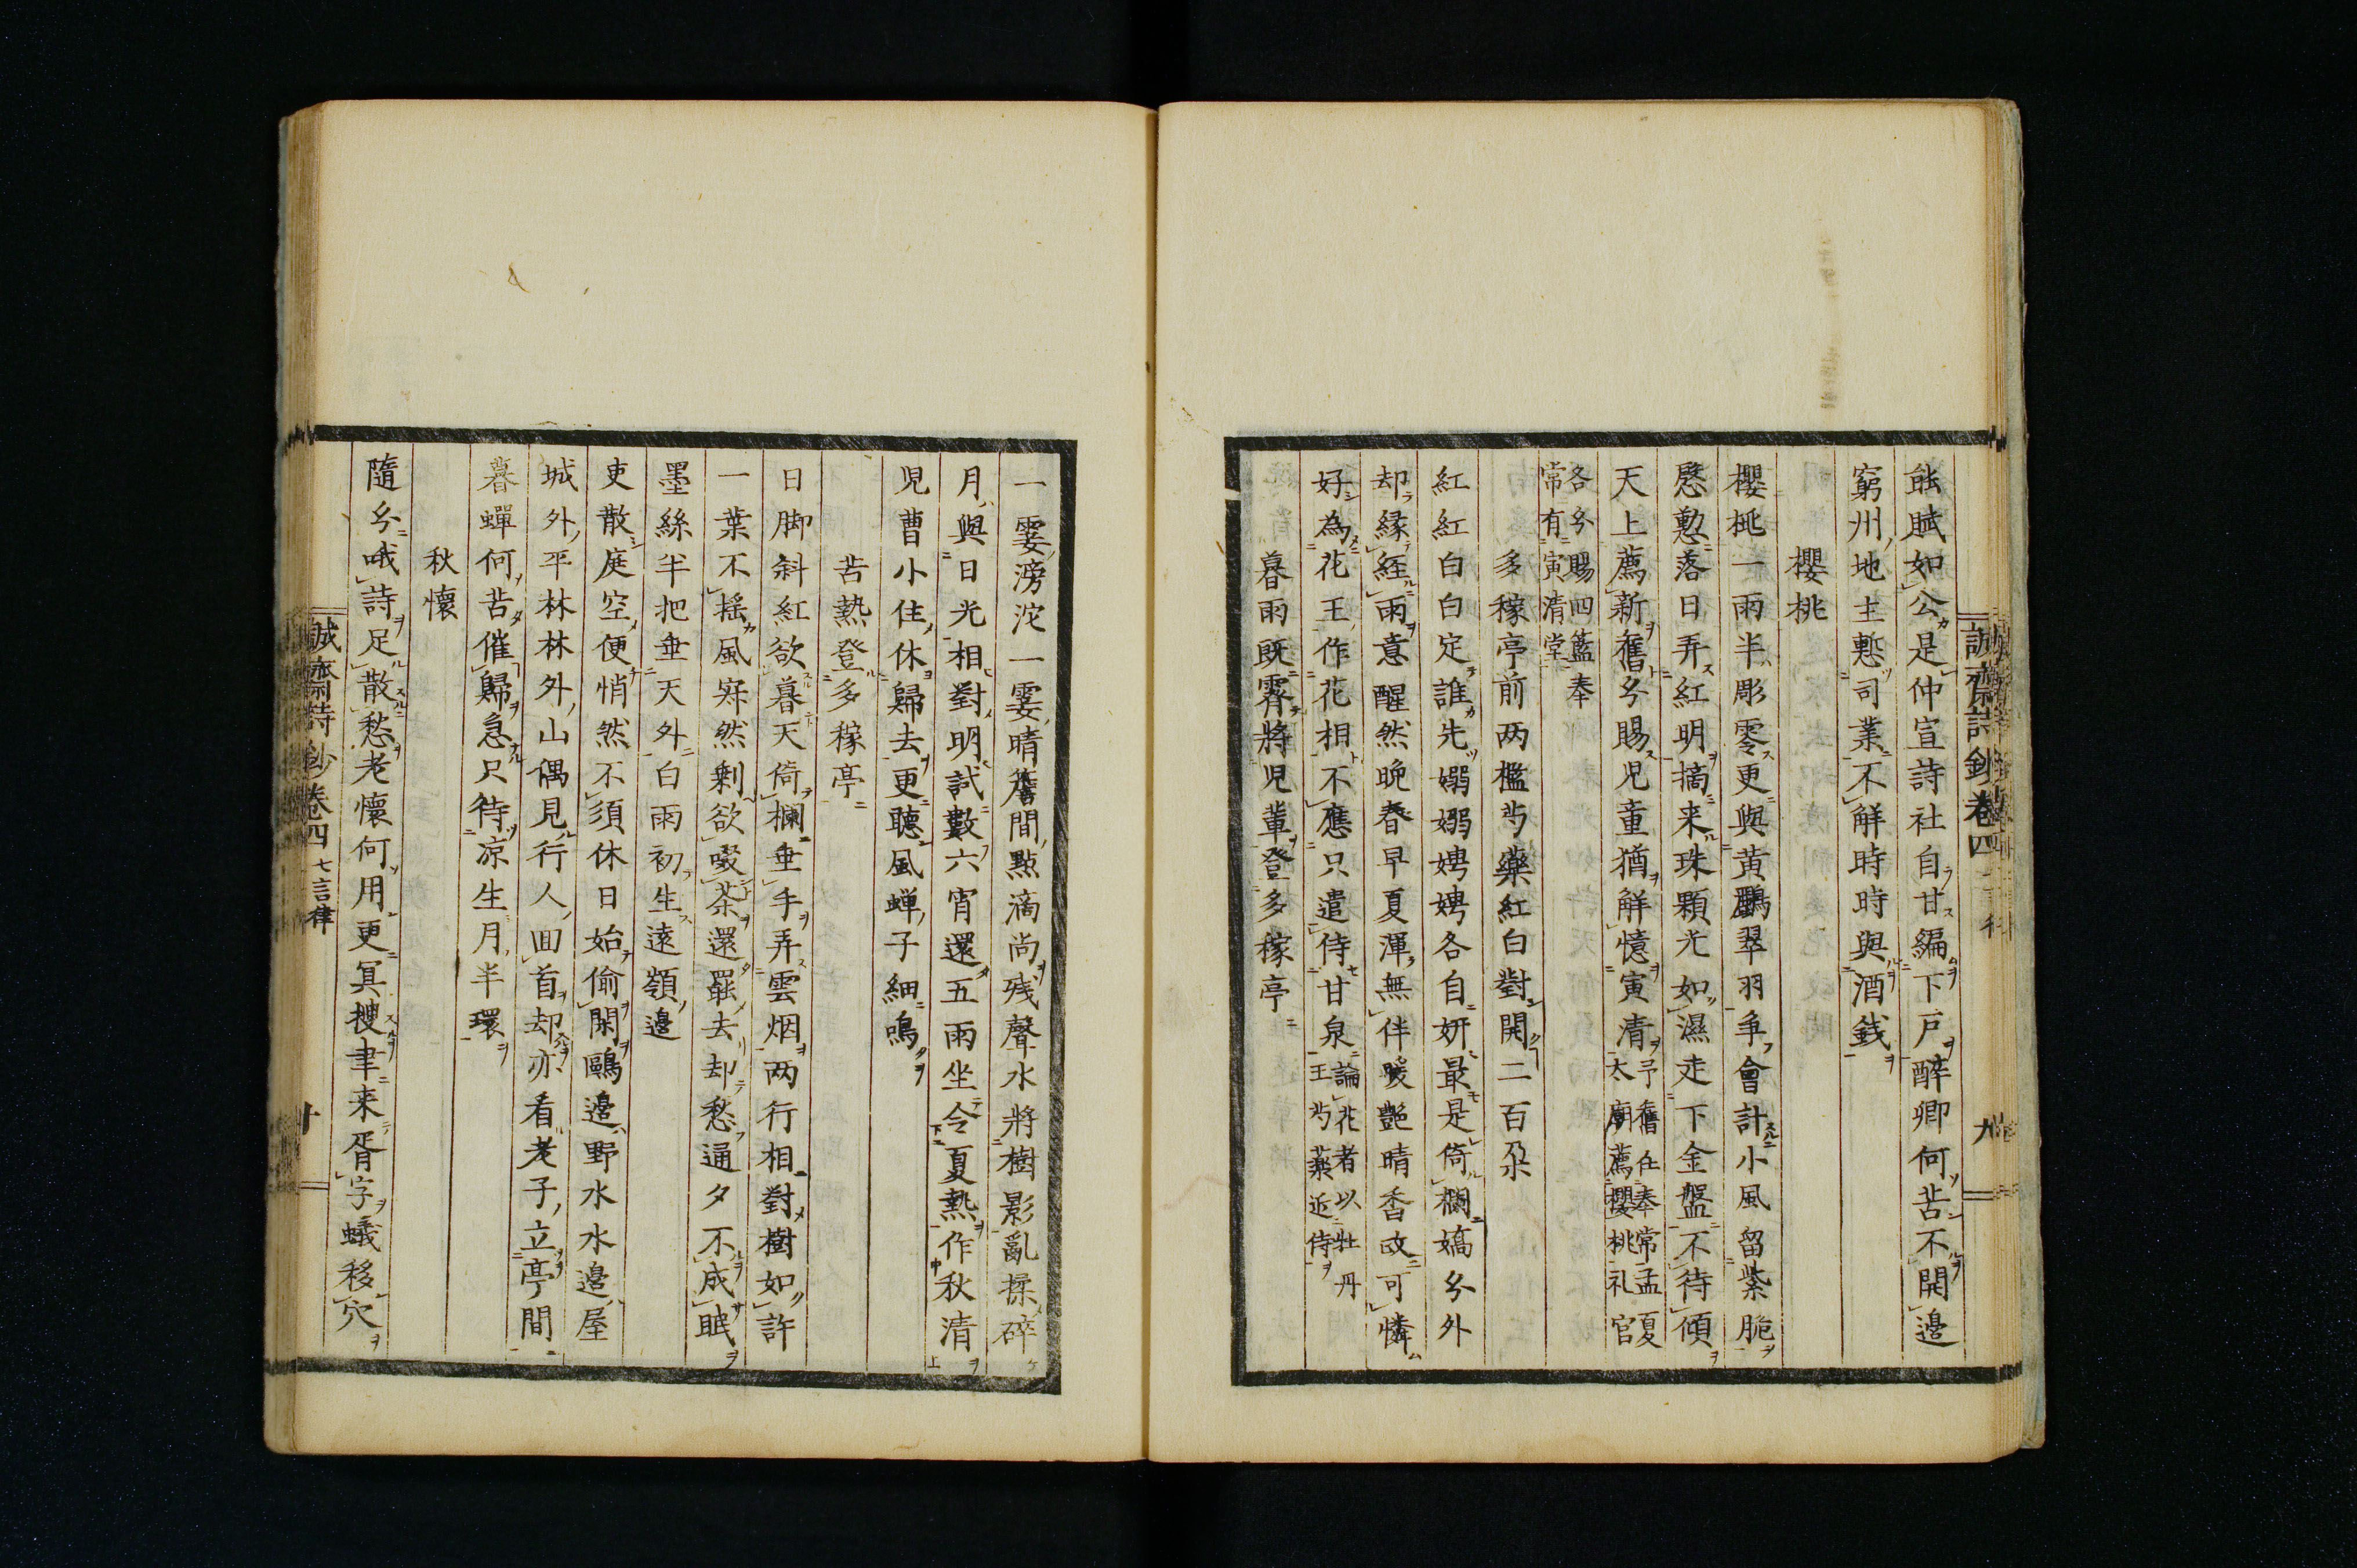 誠齋詩鈔卷四
九
能賦如公是仲宣詩社自甘編下戸醉卿何苦不開邉
窮州地主慙司業不觧時時與酒銭
櫻桃
櫻桃一雨半彫零更與黄鸝翠羽争會計小風留紫脆
慇懃落日弄紅明摘来珠顆光如濕走下金盤不待傾
天上薦新舊分賜児童猶觧憶寅清予舊任奉常孟夏
太廟薦櫻桃礼官
各分賜四籃奉
常有寅清堂
多稼亭前两檻芍藥紅白對開二百朶
紅紅白白定誰先嫋嫋娉娉各自妍最是倚欄嬌分外
却縁経雨意醒然晩春早夏渾無伴暖艶晴香政可憐
好為花王作花相不應只遣侍甘泉論花者以牡丹
王芍薬近侍
暮雨既霽將児輩登多稼亭
一霎滂沱一霎晴簷間點滴尚残聲水將樹影亂揉碎
月與日光相對明試數六宵還五雨坐令夏熱作秋清
児曹小住休歸去更聴風蝉子細鳴
苦熱登多稼亭
日脚斜紅欲暮天倚欄垂手弄雲烟两行相對樹如許
一葉不揺風寂然剩欲啜茶還罷去却愁通夕不成眠
墨絲半把垂天外白雨初生遠嶺邉
吏散庭空便悄然不須休日始偷閑鷗邉野水水邉屋
城外平林林外山偶見行人回首却亦看老子立亭間
暮蟬何苦催歸急只待凉生月半環
秋懐
隨分哦詩足散愁老懐何用更冥搜聿来胥字蟻移穴
誠齋詩鈔卷四 七言律
十